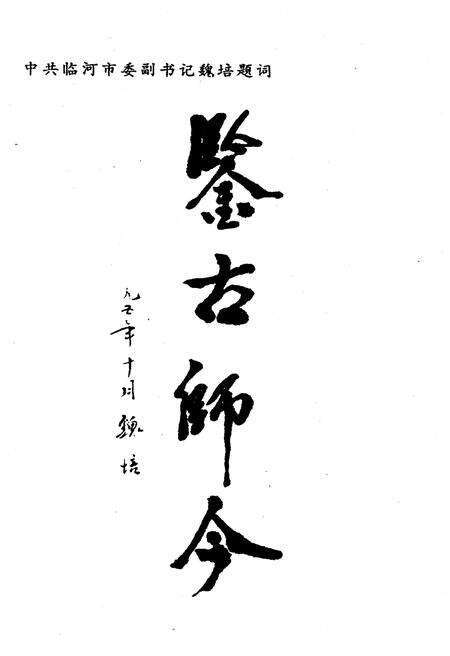 中共临河市委副书记魏培题词
鑒古師今
九五年十月魏培